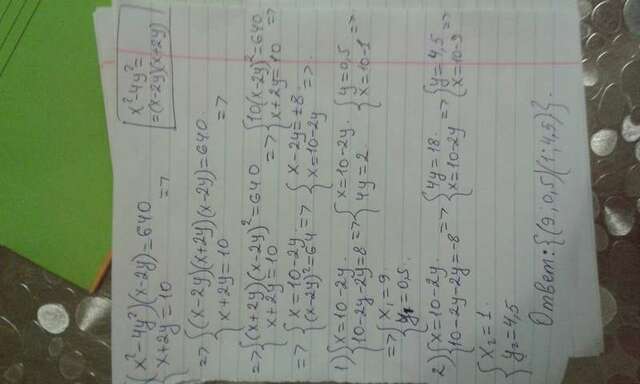 {(x²-4y²)(x-2y)=640
x+2y=10 =>
x²-4y²=
=(x-2y)(x+2y)
=> {(x-2y)(x+2y)(x-2y)=640
x+2y=10 =>
=> {(x+2y)(x-2y)²=640
x+2y=10 => {10(x-2y)²=640
x+2y=10 =>
=> {x=10-2y
(x-2y)²=64 => {x-2y=±8
x=10-2y =>
1) {x=10-2y
10-2y-2y=8 => {x=10-2y
4y=2 {y=0,5
x=10-1 =>
=> {x₁=9
y₁=0,5.
2) {x=10-2y
10-2y-2y=-8 => {4y=18
x=10-2y => {y=4,5
x=10-9 =>
{x₂=1.
y₂=4,5
Ответ: {(9; 0,5)(1; 4,5)}.